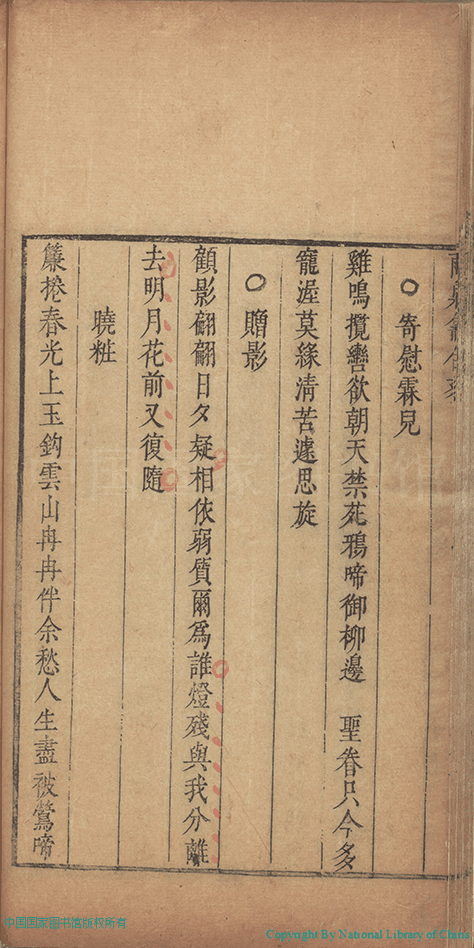 寄慰霖兒
雞鳴攬轡欲朝天禁苑鴉啼御柳邊 聖眷只今多
寵渥莫緣清苦遽思旋
贈影
顧影翩翩日夕疑相依弱質爾為誰燈殘與我分離
去明月花前又復隨
曉粧
簾捲春光上玉鈎雲山冉冉伴余愁人生盡被鶯啼
中国国家图书馆版权所有
Copyright By National Library of China